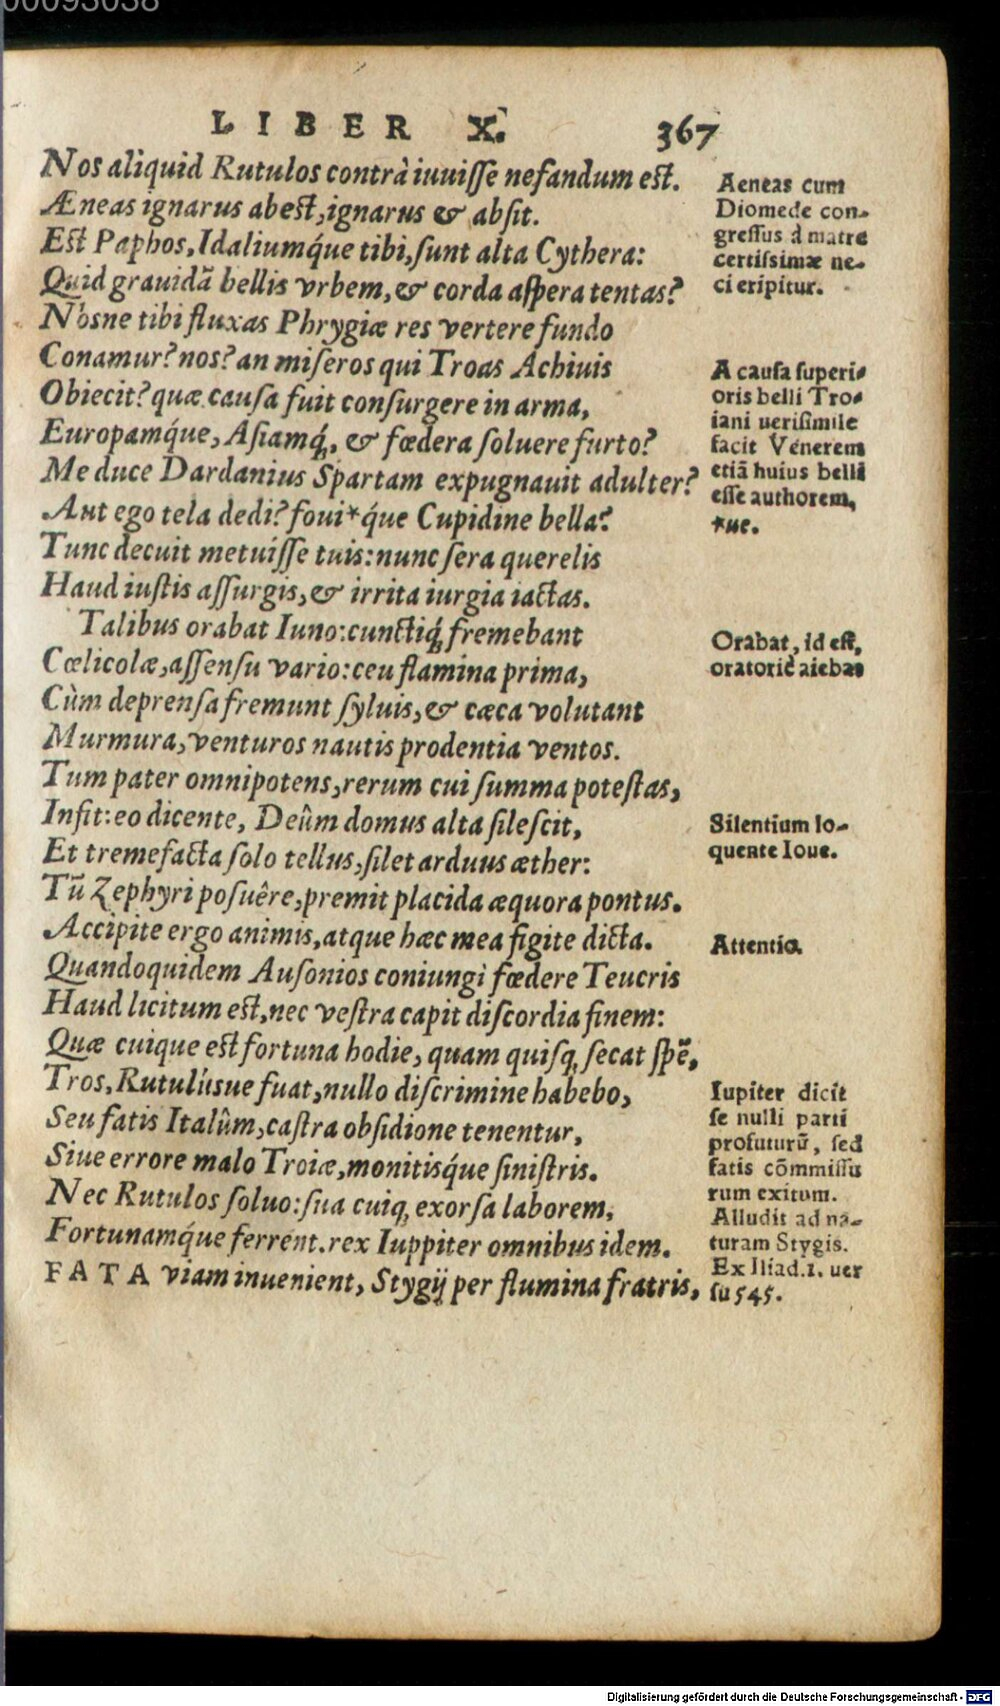 00093038
LIBER X. 367
Nos aliquid Rutulos contrà iuuisse nefandum est.
Æneas ignarus abest, ignarus & absit.
Est Paphos, Idaliumq́ue tibi, sunt alta Cythera:
Quid grauidā bellis vrbem, & corda aspera tentas?
Nosne tibi fluxas Phrygiæ res vertere fundo
Conamur? nos? an miseros qui Troas Achiuis
Obiecit? quæ causa fuit consurgere in arma,
Europamq́ue, Asiamq́, & fœdera soluere furto?
Me duce Dardanius Spartam expugnauit adulter?
Aut ego tela dedi? foui*q́ue Cupidine bella?
Tunc decuit metuisse tuis: nunc sera querelis
Haud iustis assurgis, & irrita iurgia iactas.
Talibus orabat Iuno: cunctiq́ fremebant
Cœlicolæ, assensu vario: ceu flamina prima,
Cùm deprensa fremunt syluis, & cæca volutant
Murmura, venturos nautis prodentia ventos.
Tum pater omnipotens, rerum cui summa potestas,
Infit: eo dicente, Deûm domus alta silescit,
Et tremefacta solo tellus, silet arduus æther:
Tū Zephyri posuêre, premit placida æquora pontus.
Accipite ergo animis, atque hæc mea figite dicta.
Quandoquidem Ausonios coniungi fœdere Teucris
Haud licitum est, nec vestra capit discordia finem:
Quæ cuique est fortuna hodie, quam quisq; secat spē,
Tros, Rutulúsue fuat, nullo discrimine habebo,
Seu fatis Italûm, castra obsidione tenentur,
Siue errore malo Troiæ, monitisq́ue sinistris.
Nec Rutulos soluo: sua cuiq; exorsa laborem,
Fortunamq́ue ferrent. rex Iuppiter omnibus idem.
FATA viam inuenient, Stygij per flumina fratris,
Aeneas cum
Diomede con-
gressus à matre
certissimæ ne-
ci eripitur.
A causa superi-
oris belli Tro-
iani uerisimile
facit Venerem
etiā huius belli
esse authorem,
*ue.
Orabat, id est,
oratoriè aiebat
Silentium lo-
quente Ioue.
Attentio.
Iupiter dicit
se nulli parti
profuturū, sed
fatis cōmissu
rum exitum.
Alludit ad na-
turam Stygis.
Ex Iliad. 1. uer
su 545.
Digitalisierung gefördert durch die Deutsche Forschungsgemeinschaft - DFG